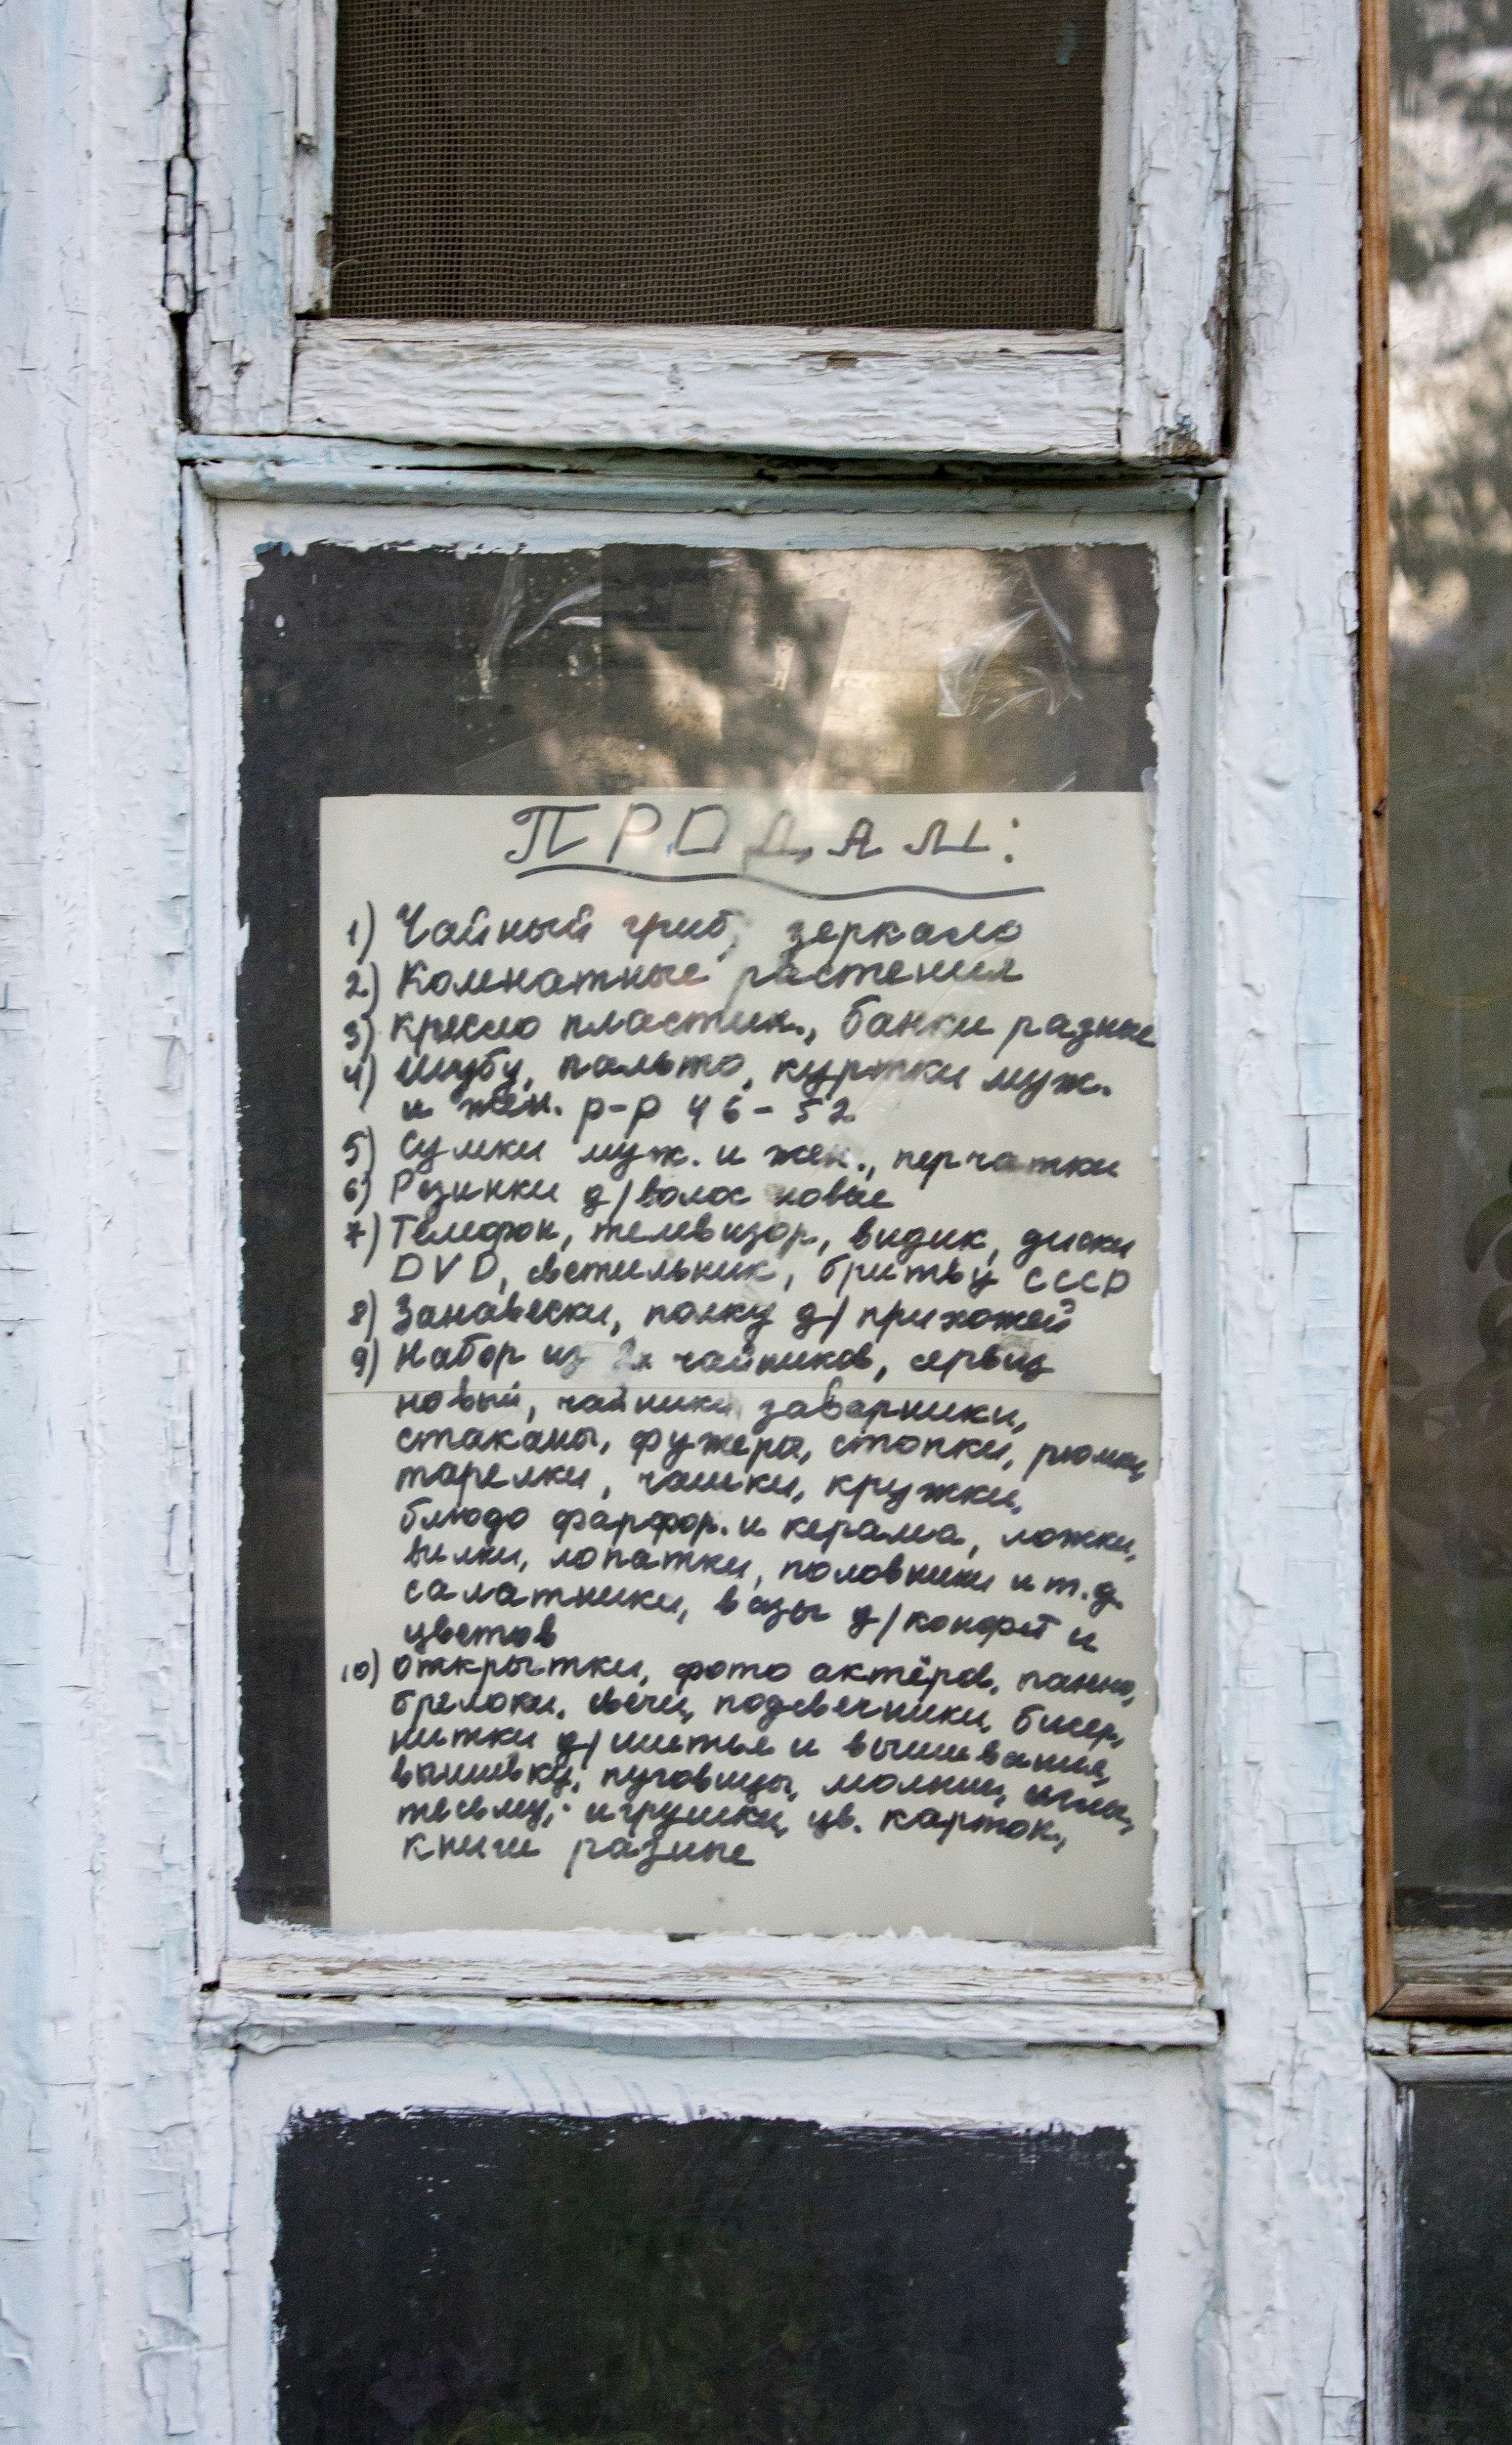 ПРОДАМ:
1) Чайный гриб, зеркало
2) Комнатные растения
3) кресло пластик., банки разные
4) Шубу, пальто, куртки муж.
и жен. р-р 46-52
5) Сумки муж. и жен., перчатки
6) Резинки д/волос новые
7) Телефон, телевизор, видик, диски
DVD, светильник, бритву СССР
8) Занавески, полку д/прихожей
9) Набор из 2х чайников, сервиз
новый, чайники заварники,
стаканы, фужеры, стопки, рюмки,
тарелки, чашки, кружки,
блюдо фарфор. и керамич, ложки,
вилки, лопатки, половники и т.д.
салатники, вазы д/конфет и
цветов
10) Открытки, фото актёров, панно,
брелоки, свечи, подсвечники, бисер,
нитки д/шитья и вышивания,
вышивку, пуговицы, молнии, иглы,
тесьму, игрушки, цв. карток.,
книги разные